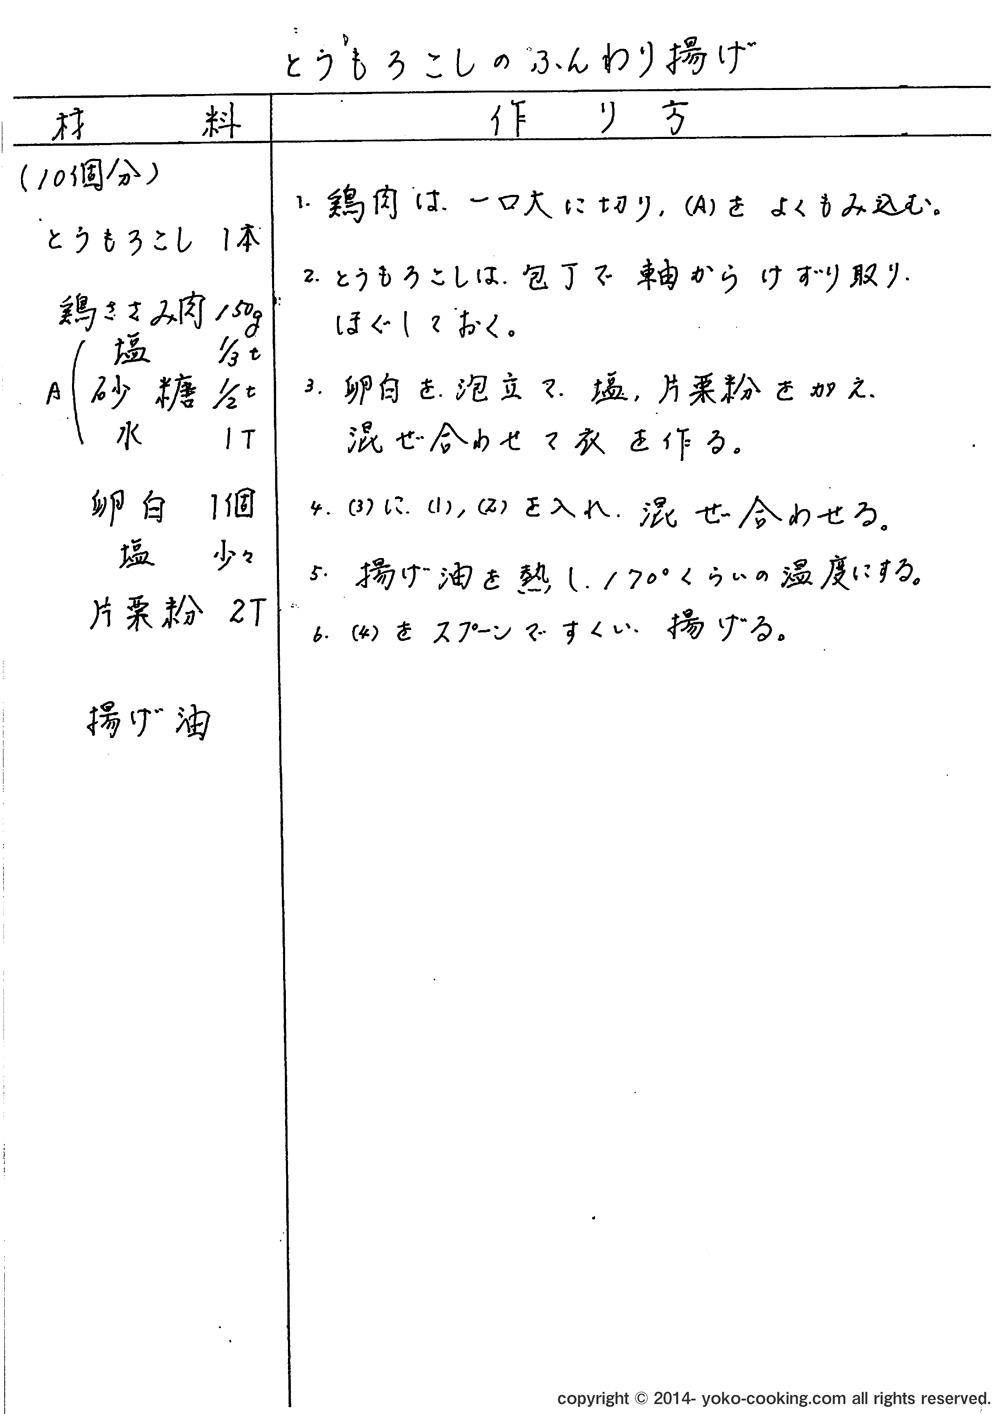 とうもろこしのふんわり揚げ
材料
作り方
(10個分)
とうもろこし 1本
鶏ささみ肉 150g
塩 1/3t
A 砂糖 1/2t
水 1T
卵白 1個
塩 少々
片栗粉 2T
揚げ油
1. 鶏肉は、一口大に切り,(A)を よくもみ込む。
2. とうもろこしは、包丁で 軸から けずり取り、
ほぐしておく。
3. 卵白を 泡立て、塩,片栗粉を加え、
混ぜ合わせて衣を作る。
4. (3)に、(1),(2)を入れ、混ぜ合わせる。
5. 揚げ油を熱し、170°くらいの温度にする。
6. (4)を スプーンですくい、揚げる。
copyright © 2014- yoko-cooking.com all rights reserved.